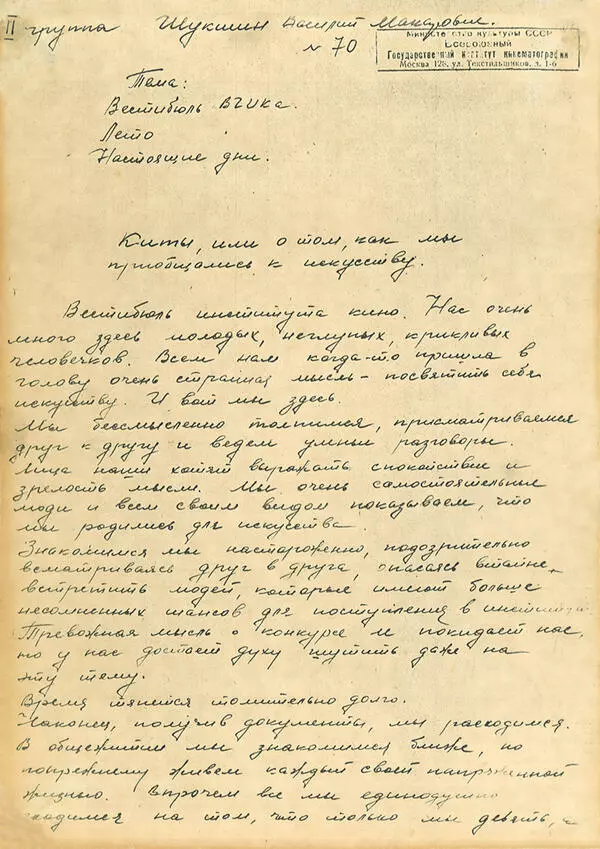 II группа Шукшин Василий Макарович.
№ 70
Министерство культуры СССР
Всесоюзный
Государственный институт кинематографии
Москва 128, ул. Текстильщиков, д. 1-б
Тема:
Вестибюль ВГИКа.
Лето
Настоящие дни.
Киты, или о том, как мы
приобщались к искусству.
Вестибюль института кино. Нас очень
много здесь молодых, неглупых, крикливых
человечков. Всем нам когда-то пришла в
голову очень странная мысль - посвятить себя
искусству. И вот мы здесь.
Мы бессмысленно толпимся, присматриваемся
друг к другу и ведем умные разговоры.
Лица наши хотят выражать спокойствие и
зрелость мысли. Мы очень самостоятельные
люди и всем своим видом показываем, что
мы родились для искусства.
Знакомимся мы настороженно, подозрительно
всматриваясь друг в друга, опасаясь втайне,
встретить людей, которые имеют больше
несомненных шансов для поступления в институт
Тревожная мысль о конкурсе не покидает нас,
но у нас достает духу шутить даже на
эту тему.
Время тянется томительно долго.
Наконец, получив документы, мы расходимся.
В общежитии мы знакомимся ближе, но
попрежнему живем каждый своей напряженной
жизнью. Впрочем все мы единодушно
сходимся на том, что только мы девять,